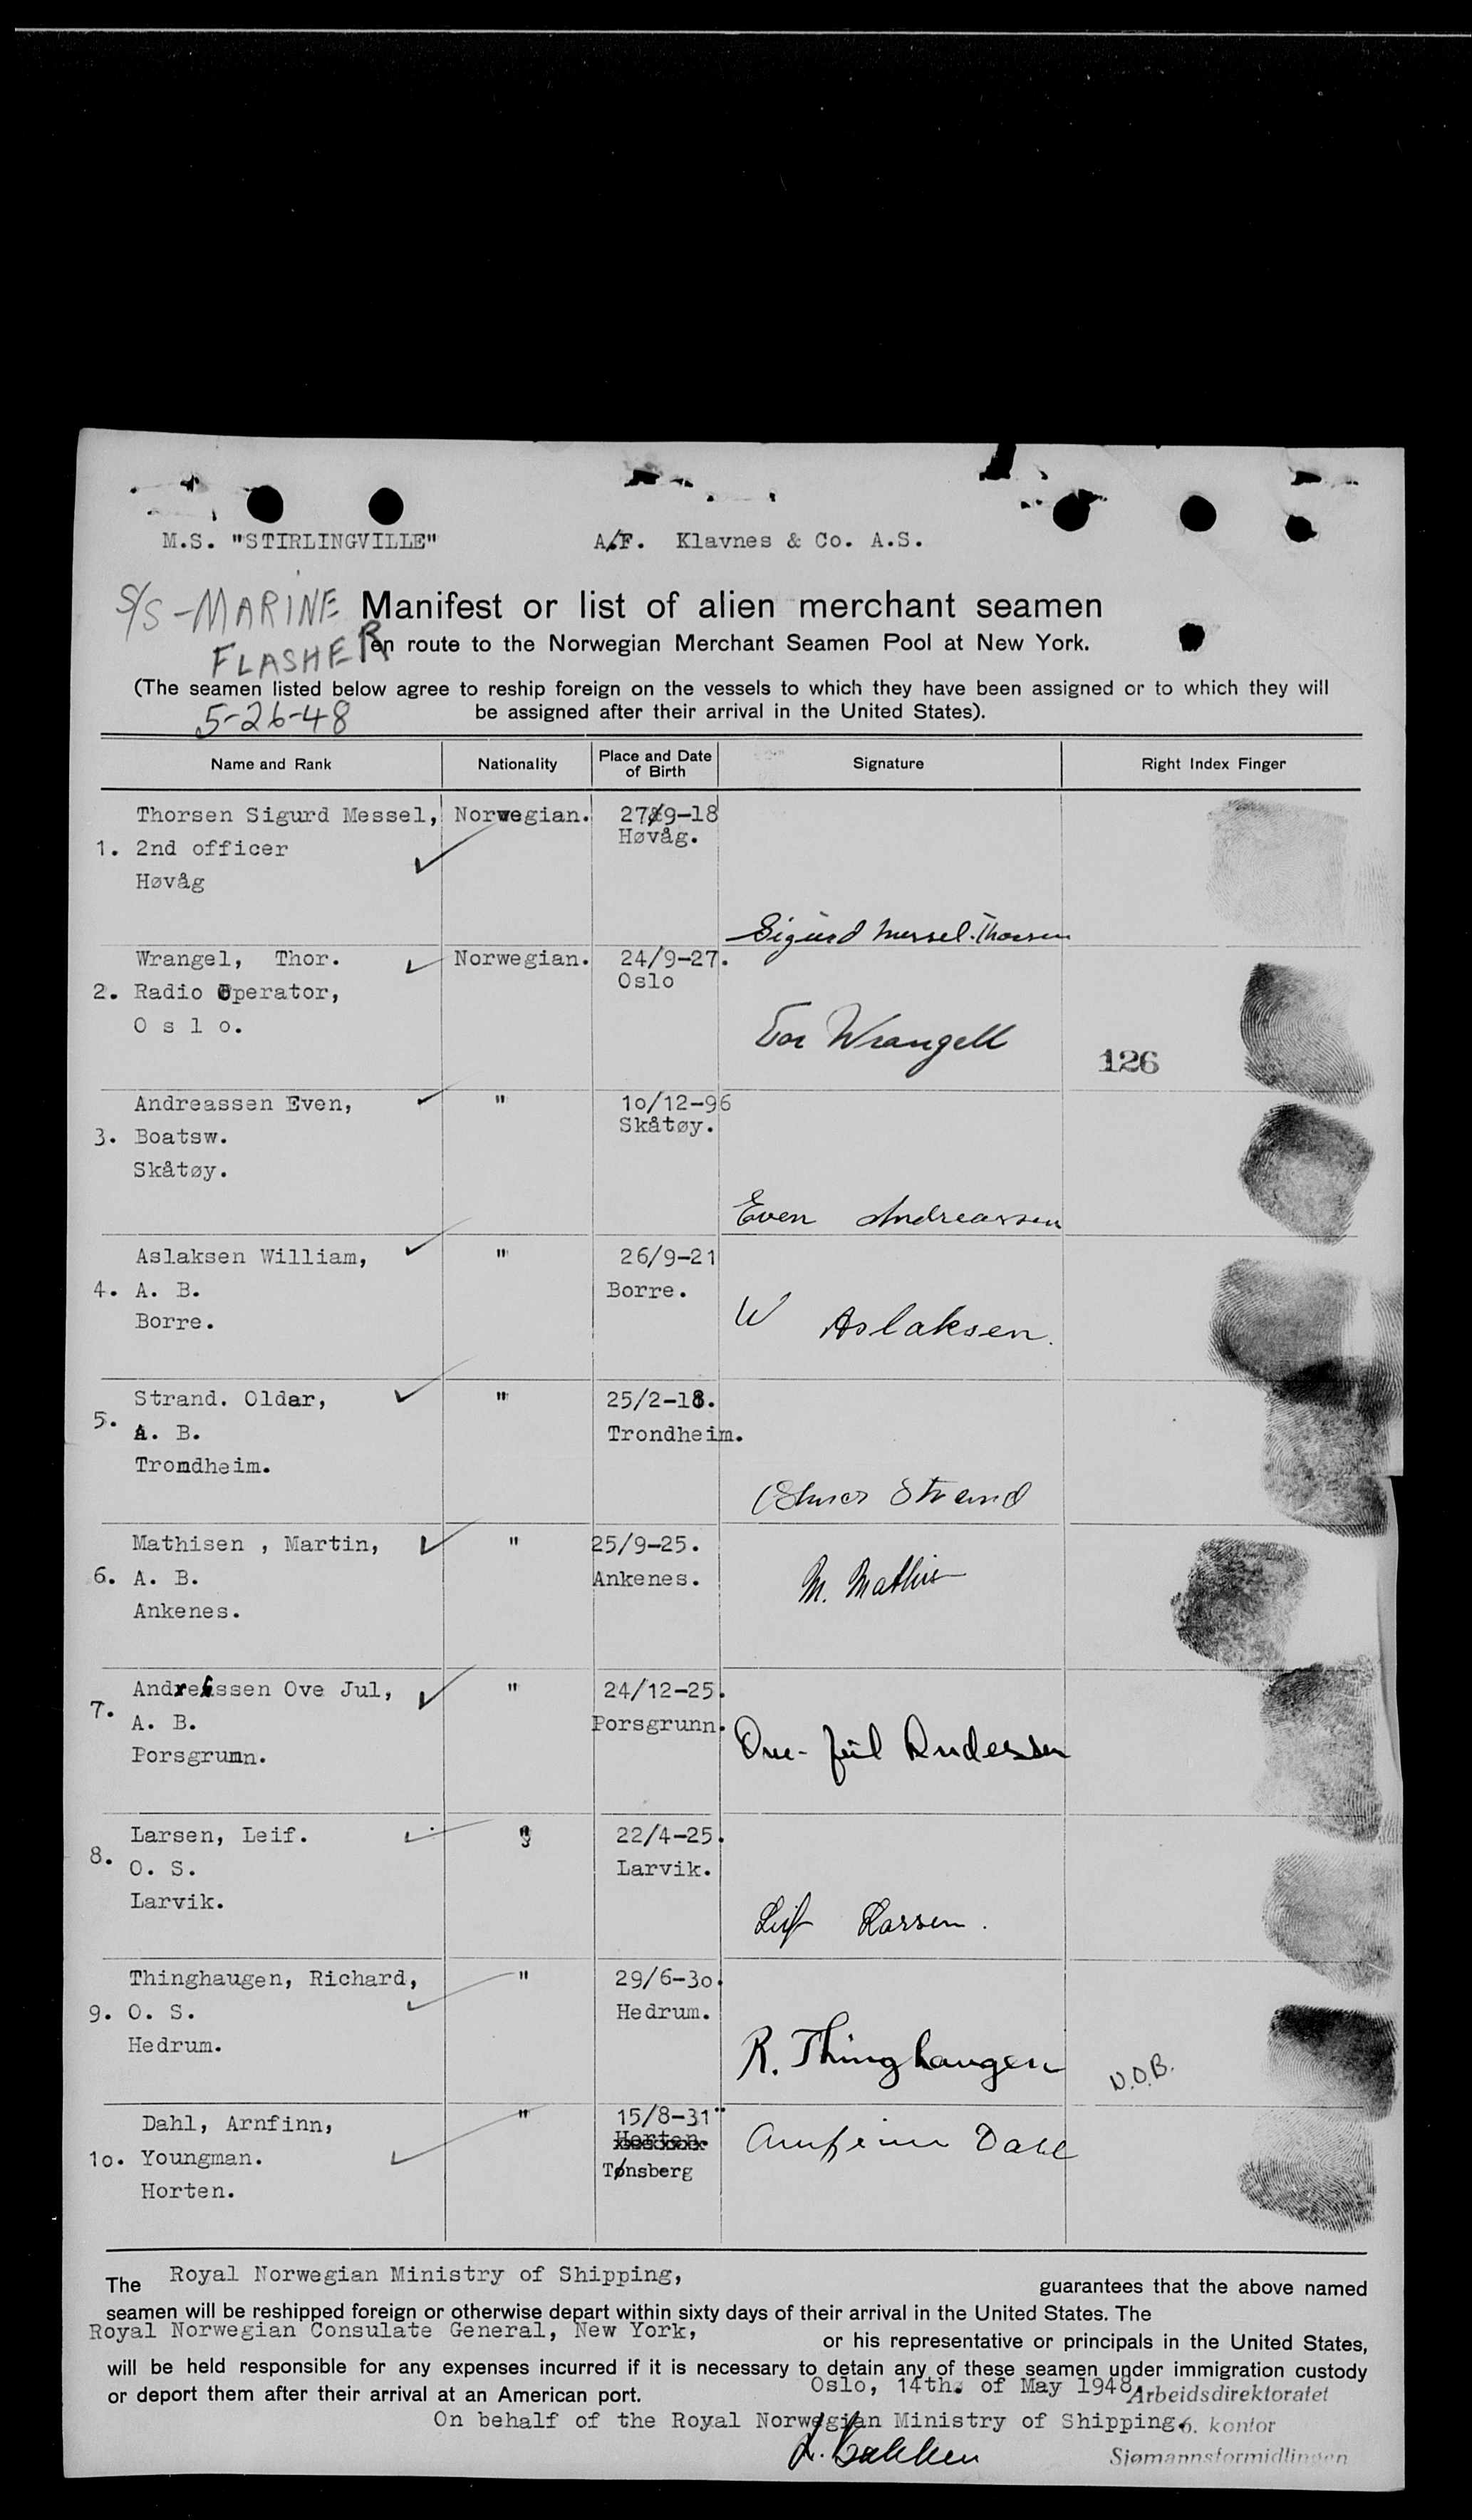 M.S. "STIRLINGVILLE" A/F. Klavnes & Co. A.S.
S/S-MARINE FLASHER
Manifest or list of alien merchant seamen
en route to the Norwegian Merchant Seamen Pool at New York.
(The seamen listed below agree to reship foreign on the vessels to which they have been assigned or to which they will
5-26-48 be assigned after their arrival in the United States).
Name and Rank Nationality Place and Date of Birth Signature Right Index Finger
Thorsen Sigurd Messel, Norwegian. 27/9-18
1. 2nd officer Høvåg.
Høvåg
Sigurd Messel-Thorsen
Wrangel, Thor. Norwegian. 24/9-27.
2. Radio Operator, Oslo
O s l o.
Tor Wrangell
126
Andreassen Even, " 10/12-96
3. Boatsw. Skåtøy.
Skåtøy.
Even Andreassen
Aslaksen William, " 26/9-21
4. A. B. Borre.
Borre.
W Aslaksen.
Strand. Oldar, " 25/2-18.
5. A. B. Trondheim.
Trondheim.
Strand
Mathisen , Martin, " 25/9-25.
6. A. B. Ankenes.
Ankenes.
M. Mathis
Andreassen Ove Jul, " 24/12-25.
7. A. B. Porsgrunn.
Porsgrunn.
Ove-Jul Andessen
Larsen, Leif. " 22/4-25.
8. O. S. Larvik.
Larvik.
Leif Larsen.
Thinghaugen, Richard, " 29/6-3o.
9. O. S. Hedrum.
Hedrum.
R. Thinghaugen
N.O.B.
Dahl, Arnfinn, " 15/8-31"
1o. Youngman. Horten.
Horten. Tønsberg
Arnfinn Dahl
The Royal Norwegian Ministry of Shipping, guarantees that the above named
seamen will be reshipped foreign or otherwise depart within sixty days of their arrival in the United States. The
Royal Norwegian Consulate General, New York, or his representative or principals in the United States,
will be held responsible for any expenses incurred if it is necessary to detain any of these seamen under immigration custody
or deport them after their arrival at an American port. Oslo, 14th. of May 1948.
Arbeidsdirektoratet
On behalf of the Royal Norwegian Ministry of Shipping.
6. kontor
Sjømannsformidlingen